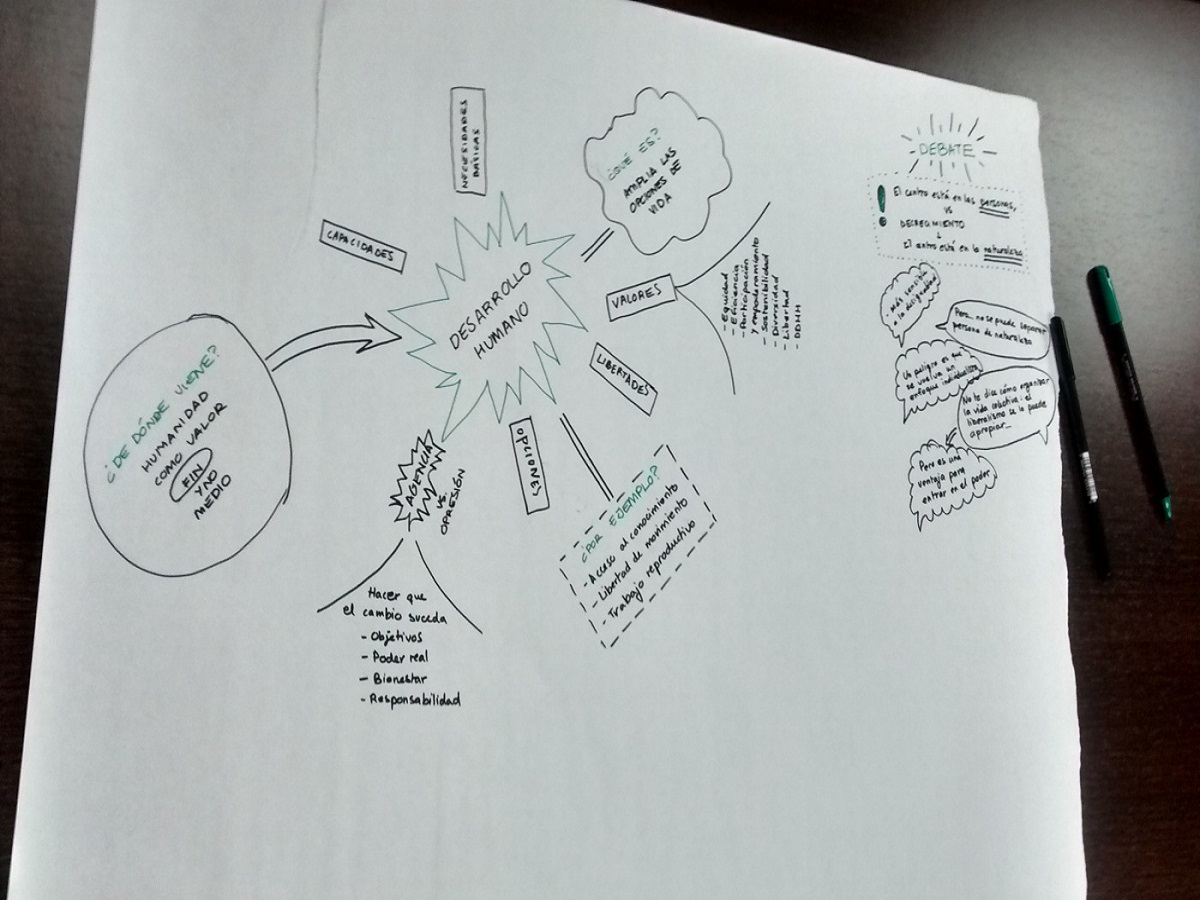 ¿DE DÓNDE VIENE?
HUMANIDAD
COMO VALOR
FIN
Y NO
MEDIO
CAPACIDADES
NECESIDADES
BÁSICAS
DESARROLLO
HUMANO
¿QUÉ ES?
AMPLIA LAS
OPCIONES DE
VIDA
VALORES
- Equidad
- Eficiencia
- Participación
y empoderamiento
- Sostenibilidad
- Diversidad
- Libertad
- DDHH
LIBERTADES
OPCIONES
¿POR EJEMPLO?
- Acceso al conocimiento
- Libertad de movimiento
- Trabajo reproductivo
AGENCIA
VS.
OPRESIÓN
Hacer que
el cambio suceda
- Objetivos
- Poder real
- Bienestar
- Responsabilidad
DEBATE
! El centro está en las personas,
VS
DECRECIMIENTO
El centro está en la naturaleza
Más sensible
a la desigualdad
Pero... no se puede separar
persona de naturaleza
Un peligro es que
se vuelva un
enfoque individualista
No te dice cómo organizar
la vida colectiva: el
liberalismo se lo puede
apropiar...
Pero es una
ventaja para
entrar en el poder